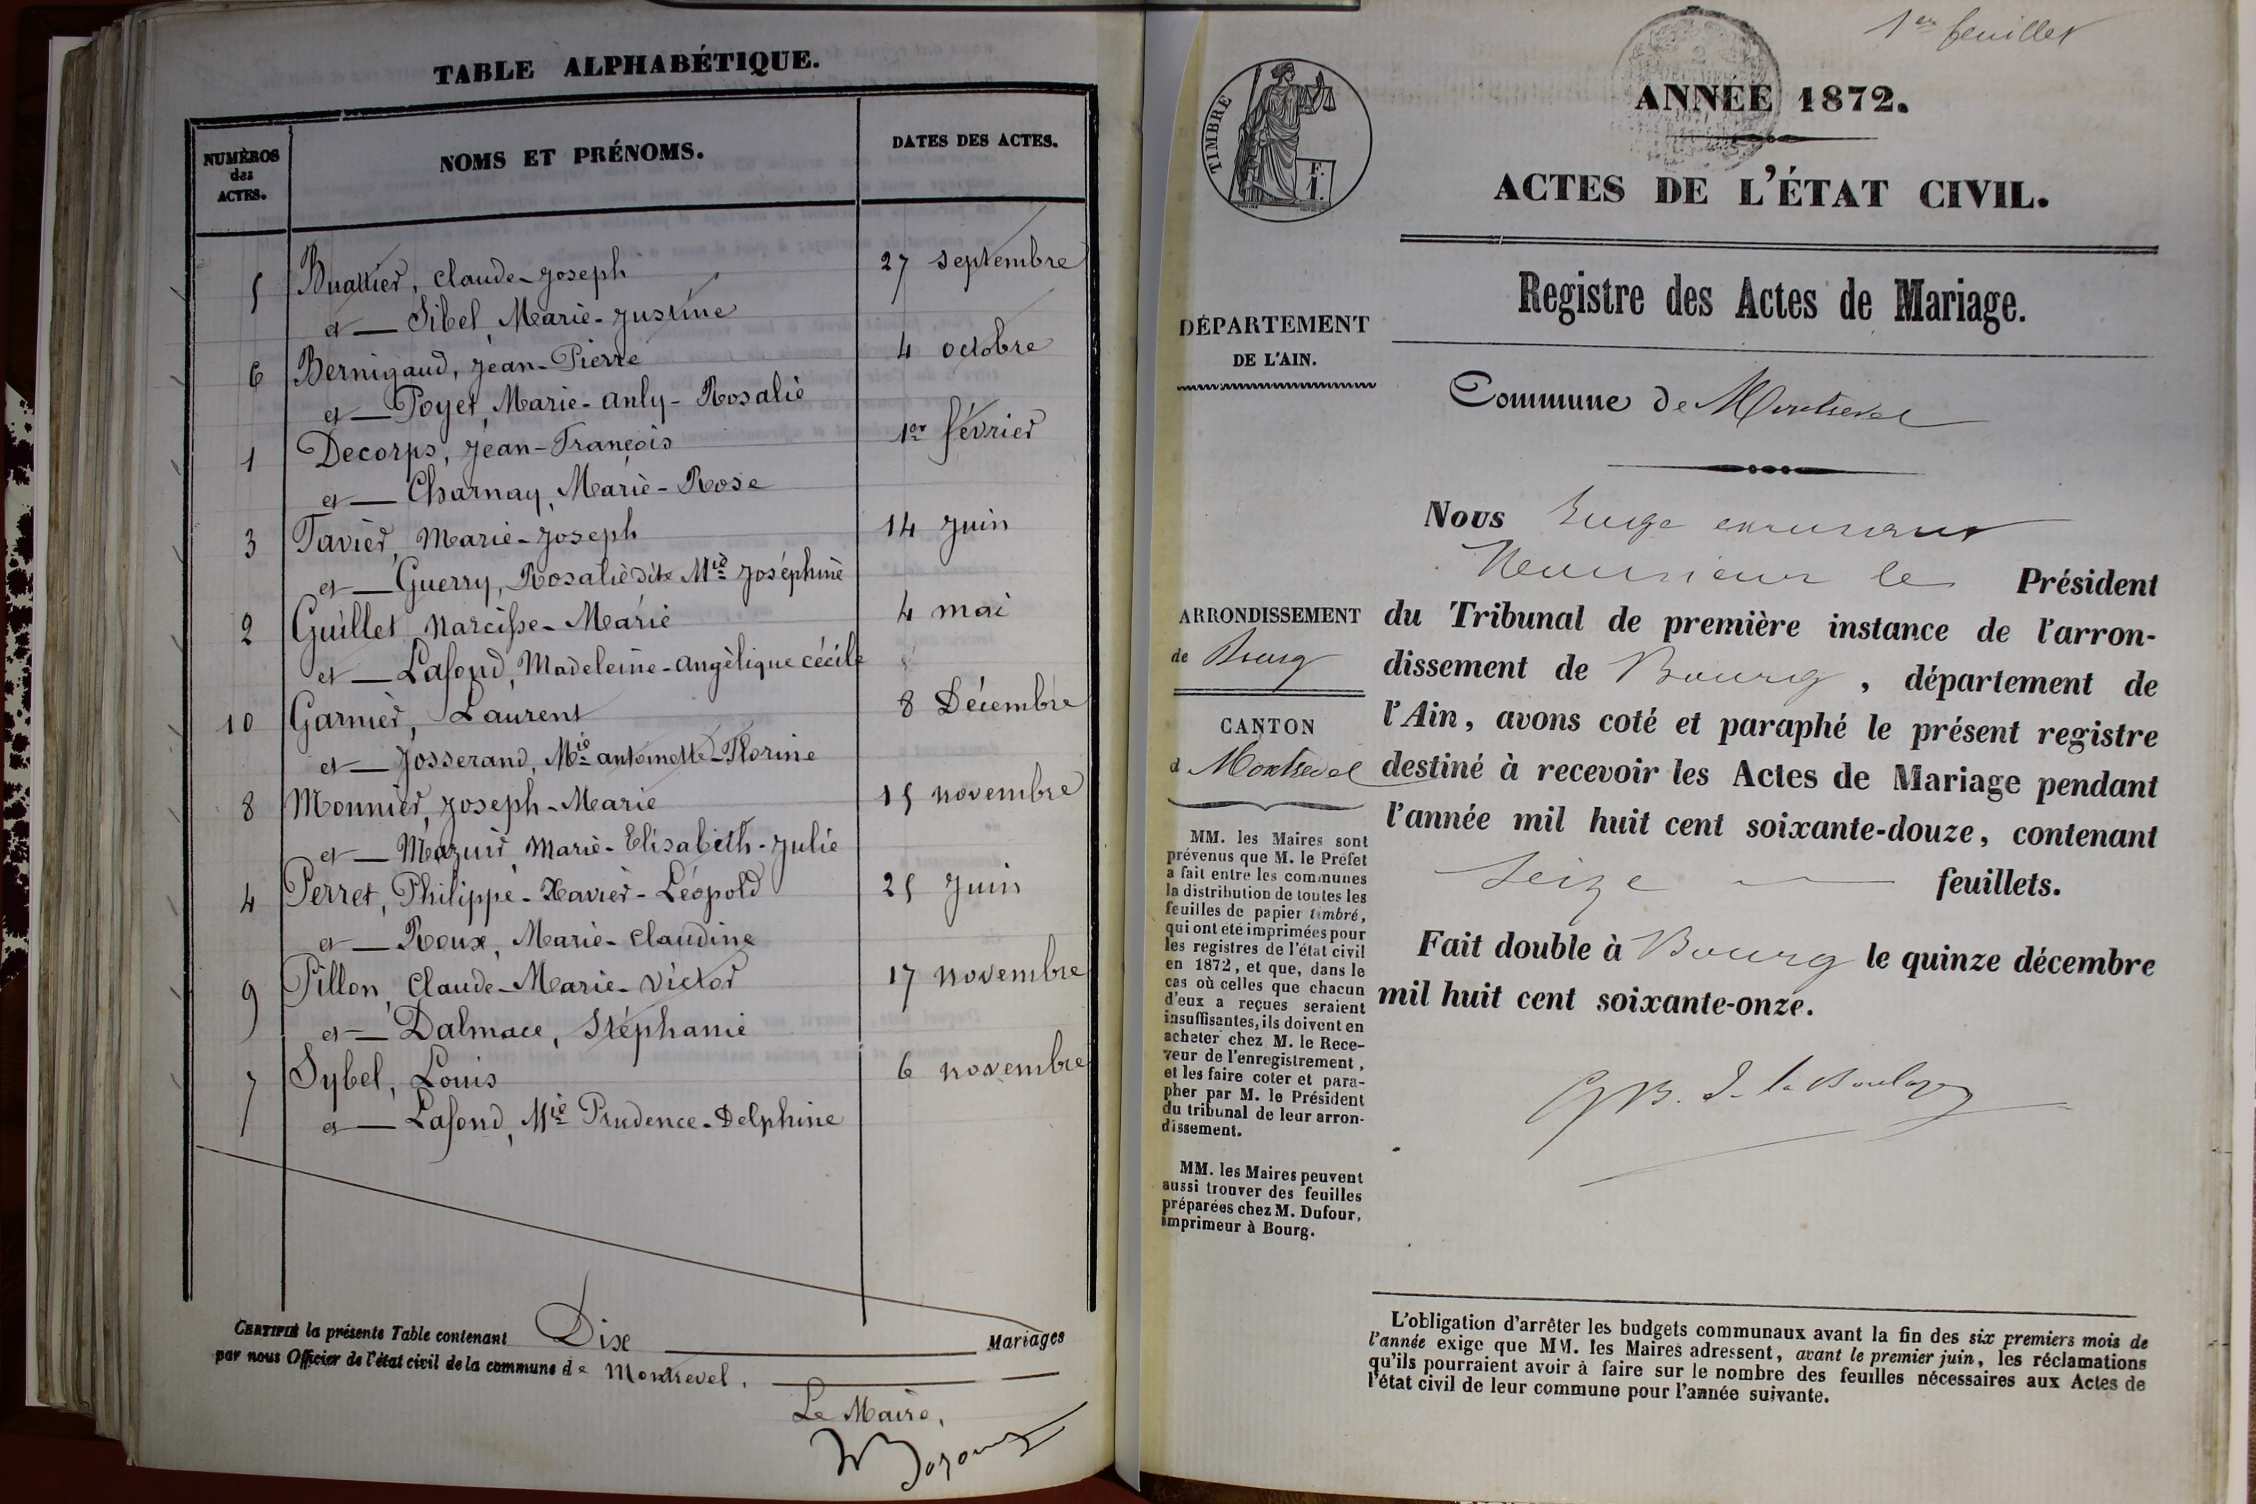 TABLE ALPHABÉTIQUE.
NUMÉROS
des
ACTES.
NOMS ET PRÉNOMS.
DATES DES ACTES.
5 Buattier, Claude-Joseph 27 septembre
et — Sibel, Marie-Justine
6 Bernigaud, Jean-Pierre 4 octobre
et — Poyet, Marie-Anly-Rosalie
1 Decorps, Jean-François 1er février
et — Charnay, Marie-Rose
3 Favier, Marie-Joseph 14 juin
et — Guerry, Rosalie dite Mie Joséphine
2 Guillet, Narcisse-Marie 4 mai
et — Lafond, Madeleine-Angèlique Cécile
10 Garnier, Laurent 8 Décembre
et — Josserand, Mie Antoinette-Florine
8 Monnier, Joseph-Marie 15 novembre
et — Mazuir, Marie-Elisabeth-Julie
4 Perret, Philippe-Xavier-Léopold 25 juin
et — Roux, Marie-Claudine
9 Pillon, Claude-Marie-Victor 17 novembre
et — Dalmace, Stéphanie
7 Sybel, Louis 6 novembre
et — Lafond, Mie Prudence-Delphine
CERTIFIÉ la présente Table contenant Dix Mariages
par nous Officier de l'état civil de la commune de Montrevel.
Le Maire,
1er feuillet
TIMBRE
F.
1.
ANNÉE 1872.
ACTES DE L'ÉTAT CIVIL.
Registre des Actes de Mariage.
DÉPARTEMENT
DE L'AIN.
Commune de Montrevel
Nous Juge
Monsieur le Président
du Tribunal de première instance de l'arron-
dissement de Bourg, département de
l'Ain, avons coté et paraphé le présent registre
destiné à recevoir les Actes de Mariage pendant
l'année mil huit cent soixante-douze, contenant
Seize feuillets.
Fait double à Bourg le quinze décembre
mil huit cent soixante-onze.
ARRONDISSEMENT
de Bourg
CANTON
d Montrevel
MM. les Maires sont
prévenus que M. le Préfet
a fait entre les communes
la distribution de toutes les
feuilles de papier timbré,
qui ont été imprimées pour
les registres de l'état civil
en 1872, et que, dans le
cas où celles que chacun
d'eux a reçues seraient
insuffisantes, ils doivent en
acheter chez M. le Rece-
veur de l'enregistrement,
et les faire coter et para-
pher par M. le Président
du tribunal de leur arron-
dissement.
MM. les Maires peuvent
aussi trouver des feuilles
préparées chez M. Dufour,
imprimeur à Bourg.
L'obligation d'arrêter les budgets communaux avant la fin des six premiers mois de
l'année exige que MM. les Maires adressent, avant le premier juin, les réclamations
qu'ils pourraient avoir à faire sur le nombre des feuilles nécessaires aux Actes de
l'état civil de leur commune pour l'année suivante.